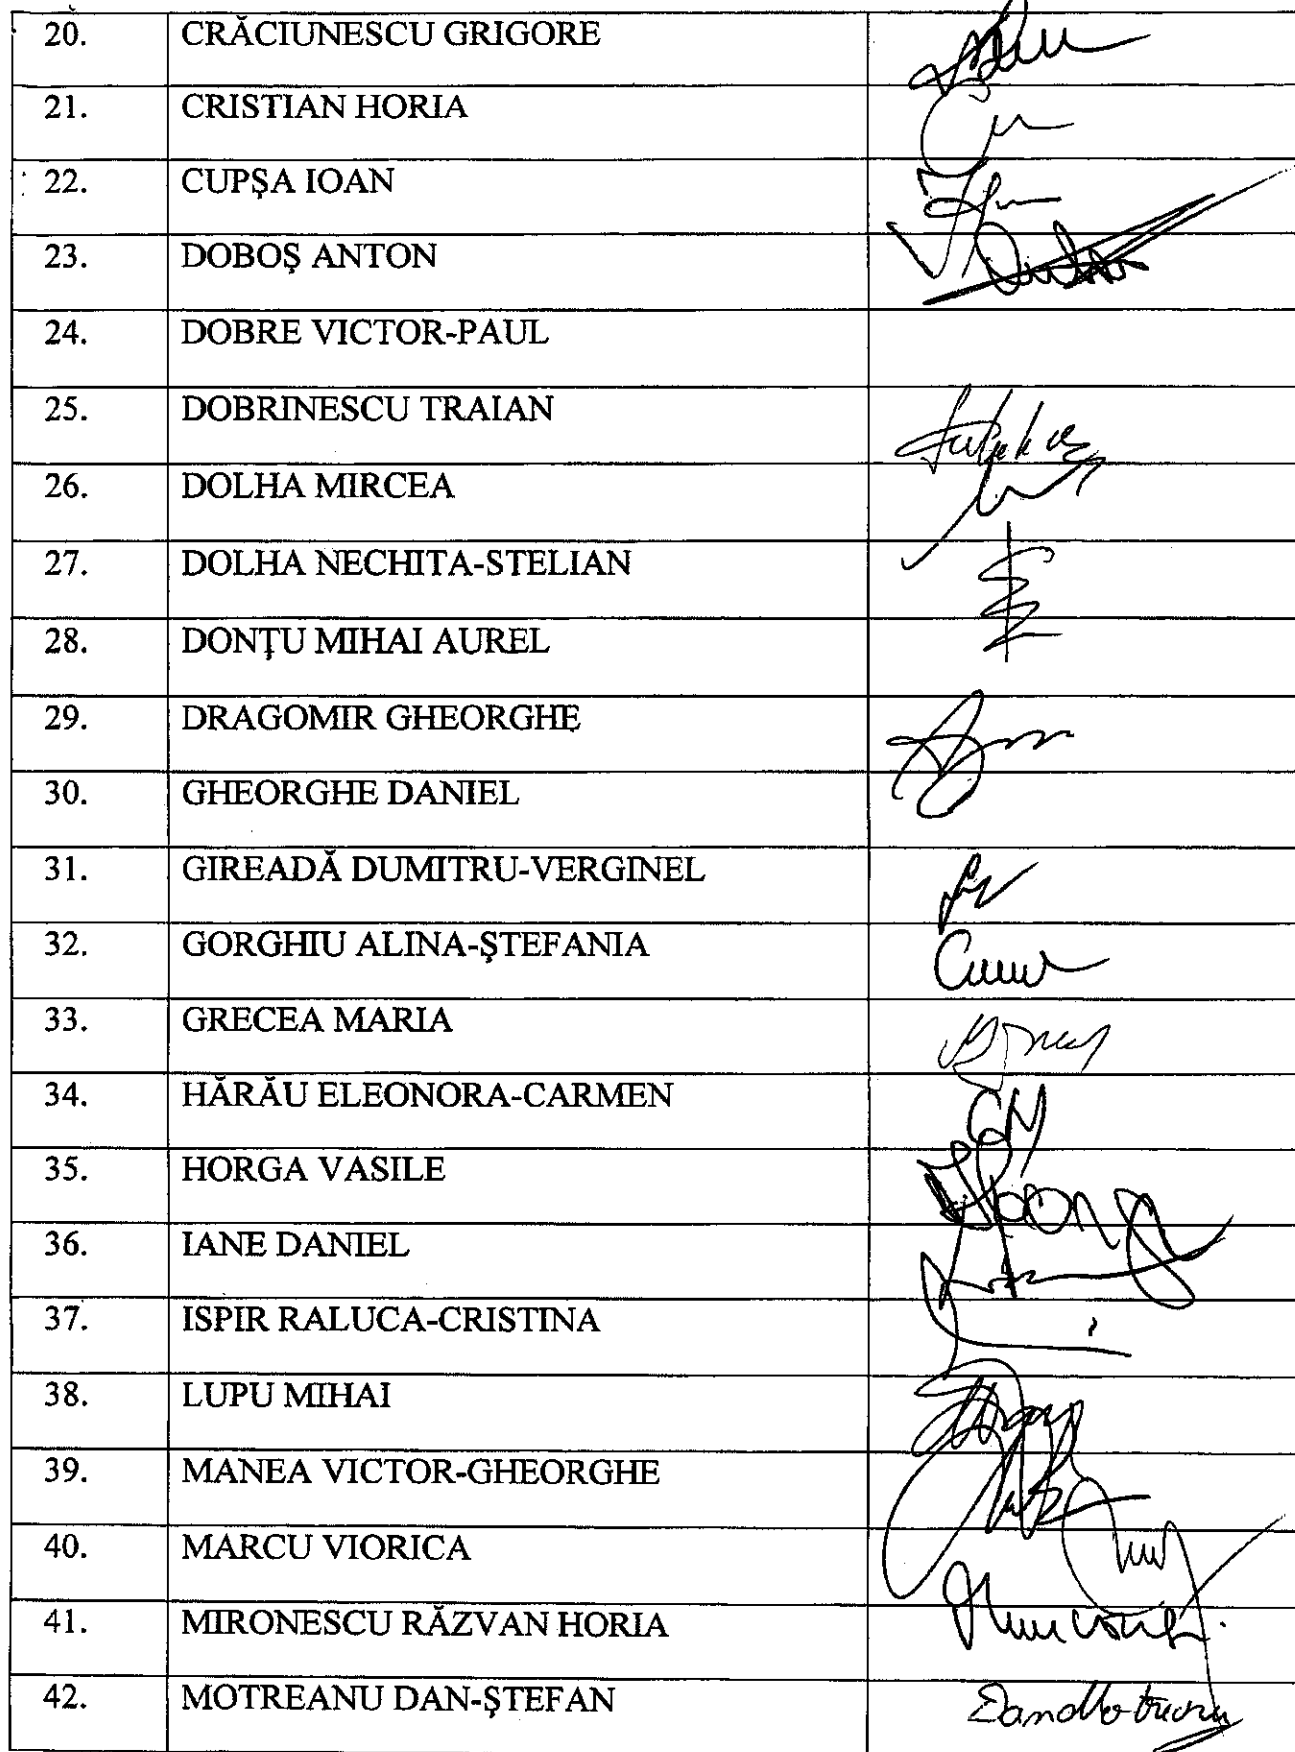 20. CRĂCIUNESCU GRIGORE
21. CRISTIAN HORIA
22. CUPŞA IOAN
23. DOBOŞ ANTON
24. DOBRE VICTOR-PAUL
25. DOBRINESCU TRAIAN
26. DOLHA MIRCEA
27. DOLHA NECHITA-STELIAN
28. DONŢU MIHAI AUREL
29. DRAGOMIR GHEORGHE
30. GHEORGHE DANIEL
31. GIREADĂ DUMITRU-VERGINEL
32. GORGHIU ALINA-ŞTEFANIA
33. GRECEA MARIA
34. HĂRĂU ELEONORA-CARMEN
35. HORGA VASILE
36. IANE DANIEL
37. ISPIR RALUCA-CRISTINA
38. LUPU MIHAI
39. MANEA VICTOR-GHEORGHE
40. MARCU VIORICA
41. MIRONESCU RĂZVAN HORIA
42. MOTREANU DAN-ŞTEFAN